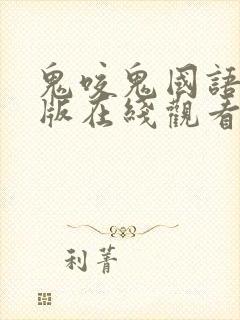 鬼咬鬼國語
版在綫觀看
利菁